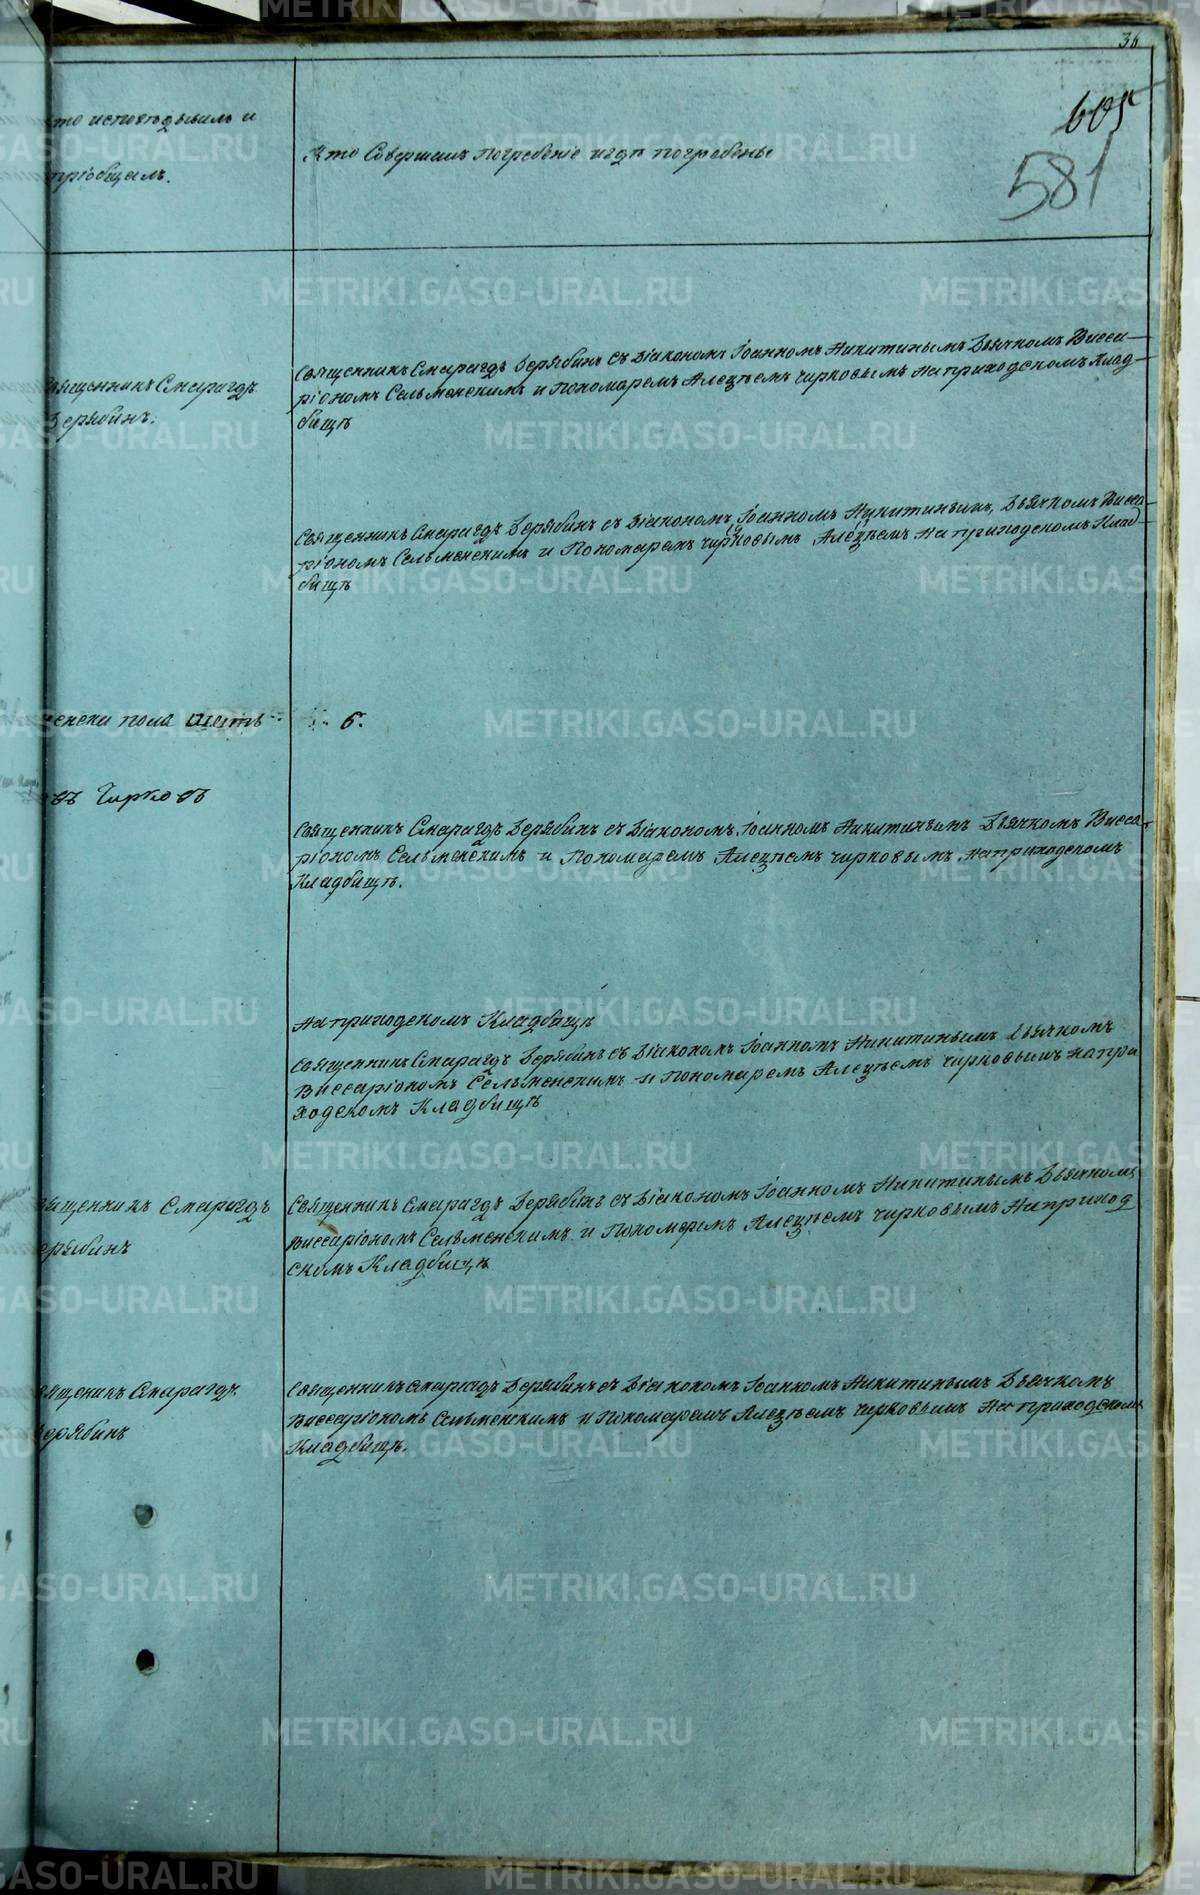 36
605
581
то исповѣдывалъ и
пріобщалъ.
Кто Совершалъ погребеніе и гдѣ погребены
Священникъ Смарагдъ
Зерябинъ.
Священникъ Смарагдъ Зерябинъ съ Діакономъ Іоанномъ Никитинымъ Дьячкомъ Висса-
ріономъ Сельменскимъ и Пономаремъ Алеѯѣемъ Чирковымъ на приходскомъ Клад-
бищѣ
Священникъ Смарагдъ Зерябинъ съ Діакономъ Іоанномъ Никитинымъ, Дьячкомъ Висса-
ріономъ Сельменскимъ и Пономаремъ Чирковымъ Алеѯѣемъ на приходскомъ Клад-
бищѣ
женска пола шесть 6.
въ Чирковъ
Священникъ Смарагдъ Зерябинъ съ Діакономъ Іоанномъ Никитинымъ Дьячкомъ Висса-
ріономъ Сельменскимъ и Пономаремъ Алеѯѣемъ Чирковымъ на приходскомъ
Кладбищѣ.
на приходскомъ Кладбищѣ
Священникъ Смарагдъ Зерябинъ съ Діакономъ Іоанномъ Никитинымъ Дьячкомъ
Виссаріономъ Сельменскимъ и Пономаремъ Алеѯѣемъ Чирковымъ на при
ходскомъ Кладбищѣ
вященникъ Смарагдъ
ерябинъ
Священникъ Смарагдъ Зерябинъ съ Діакономъ Іоанномъ Никитинымъ Дьячкомъ
Виссаріономъ Сельменскимъ и Пономаремъ Алеѯѣемъ Чирковымъ на приход
скомъ Кладбищѣ
вященикъ Смарагдъ
ерябинъ
Священникъ Смарагдъ Зерябинъ съ Діакономъ Іоанномъ Никитинымъ Дьячкомъ
Виссаріономъ Сельменскимъ и Пономаремъ Алеѯѣемъ Чирковымъ на приходскомъ
Кладбищѣ.